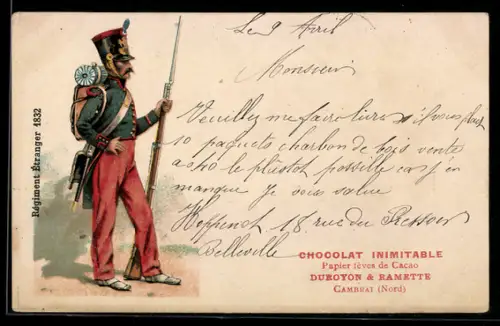 Le 9 Avril
Monsieur
Veuillez me faire livrer s'il vous plait
10 paquets charbon de bois vente
a 0f40 le plutôt possible car j'en
manque Je vous salue
18 rue du Pressoir
Belleville
Régiment Étranger 1832
CHOCOLAT INIMITABLE
Papier fèves de Cacao
DUROYON & RAMETTE
CAMBRAI (Nord)